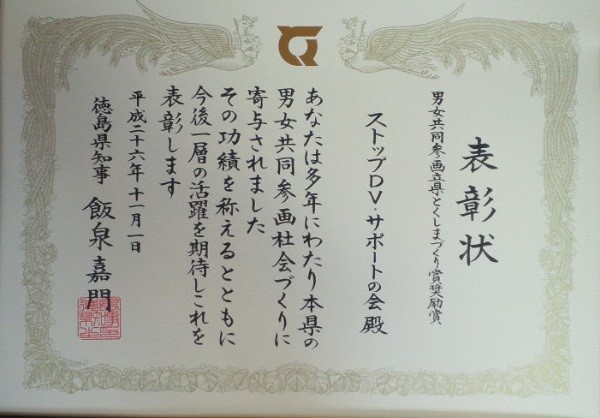 表彰状
男女共同参画立県とくしまづくり賞奨励賞
ストップDV・サポートの会 殿
あなたは多年にわたり本県の
男女共同参画社会づくりに
寄与されました
その功績を称えるとともに
今後一層の活躍を期待しこれを
表彰します
平成二十六年十一月一日
徳島県知事 飯泉嘉門